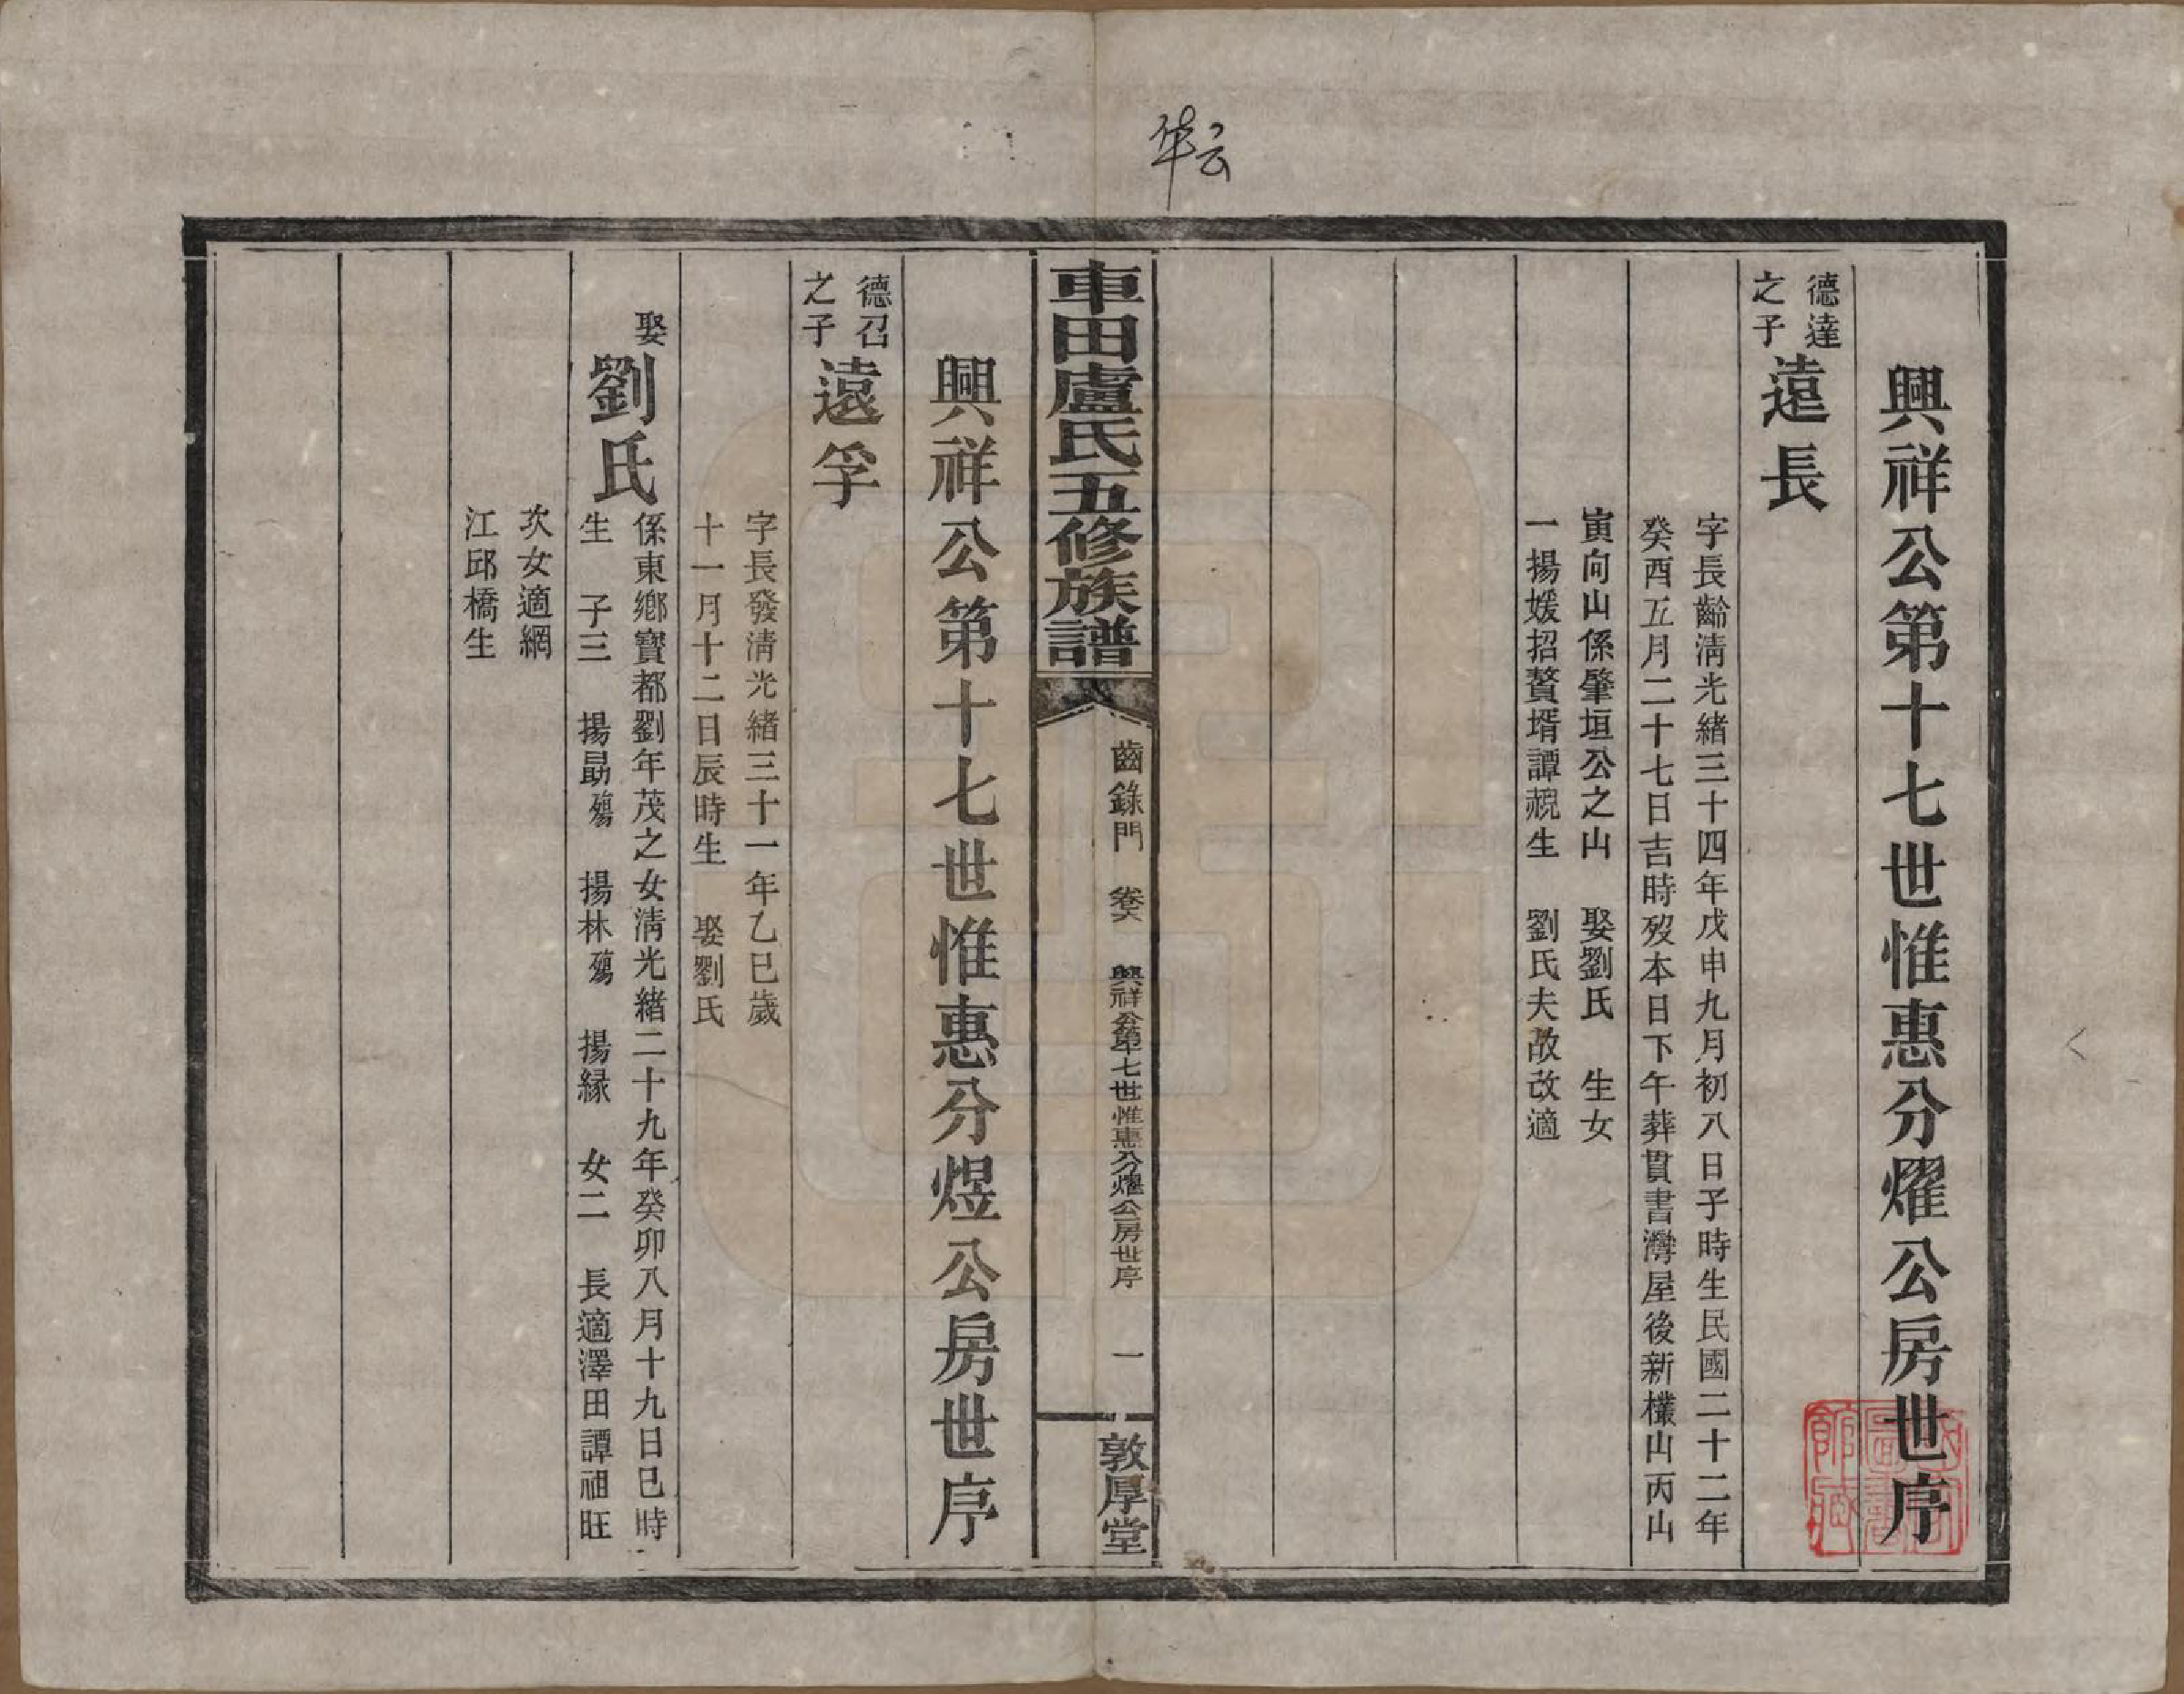 興祥公第十七世惟惠分燿公房世序
德達
之子
遠長
字長齡清光緒三十四年戊申九月初八日子時生民國二十二年
癸酉五月二十七日吉時歿本日下午葬貫書灣屋後新欉山丙山
寅向山係肇垣公之山　娶劉氏　生女
一揚媛招贅壻譚覬生　劉氏夫故改適
車田盧氏五修族譜
齒錄門　卷六　興祥公第十七世惟惠分燿公房世序　一
敦厚堂
興祥公第十七世惟惠分煜公房世序
德召
之子
遠孚
字長發清光緒三十一年乙巳歲
十一月十二日辰時生　娶劉氏
娶
劉氏
係東鄉寶都劉年茂之女清光緒二十九年癸卯八月十九日巳時
生　子三　揚勗殤　揚林殤　揚緣　女二　長適澤田譚祖旺
次女適網
江邱橋生